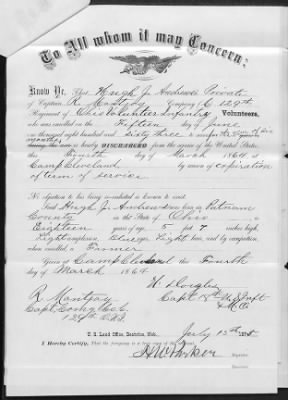 To All whom it may Concern:
Know Ye, That Hugh J. Andrews Private
of Captain R. Montjoy Company C 129th
Regiment of Ohio Volunteer Infantry Volunteers,
who was enlisted on the Fifth day of June
one thousand eight hundred and Sixty three to serve
months is hereby DISCHARGED from the service of the United States,
this Fourth day of March 1864, at
Camp Cleveland by reason of expiration
of term of service
No objection to his being re-enlisted is known to exist.
Said Hugh J. Andrews was born in Putnam
County in the State of Ohio
Eighteen years of age, 5 feet 7 inches high,
Light complexion, Blue eyes, Light hair, and by occupation,
when enlisted, a Farmer
Given at Camp Cleveland this Fourth
day of March 1864
R Montjoy
Capt. 18th U.S. Inft
Capt. Comdg Co. C.
129th O.V.I.
U. S. Land Office, Beatrice, Neb. July 15th
I Hereby Certify, That the foregoing is a true copy
H W Parker
Register
Receiver